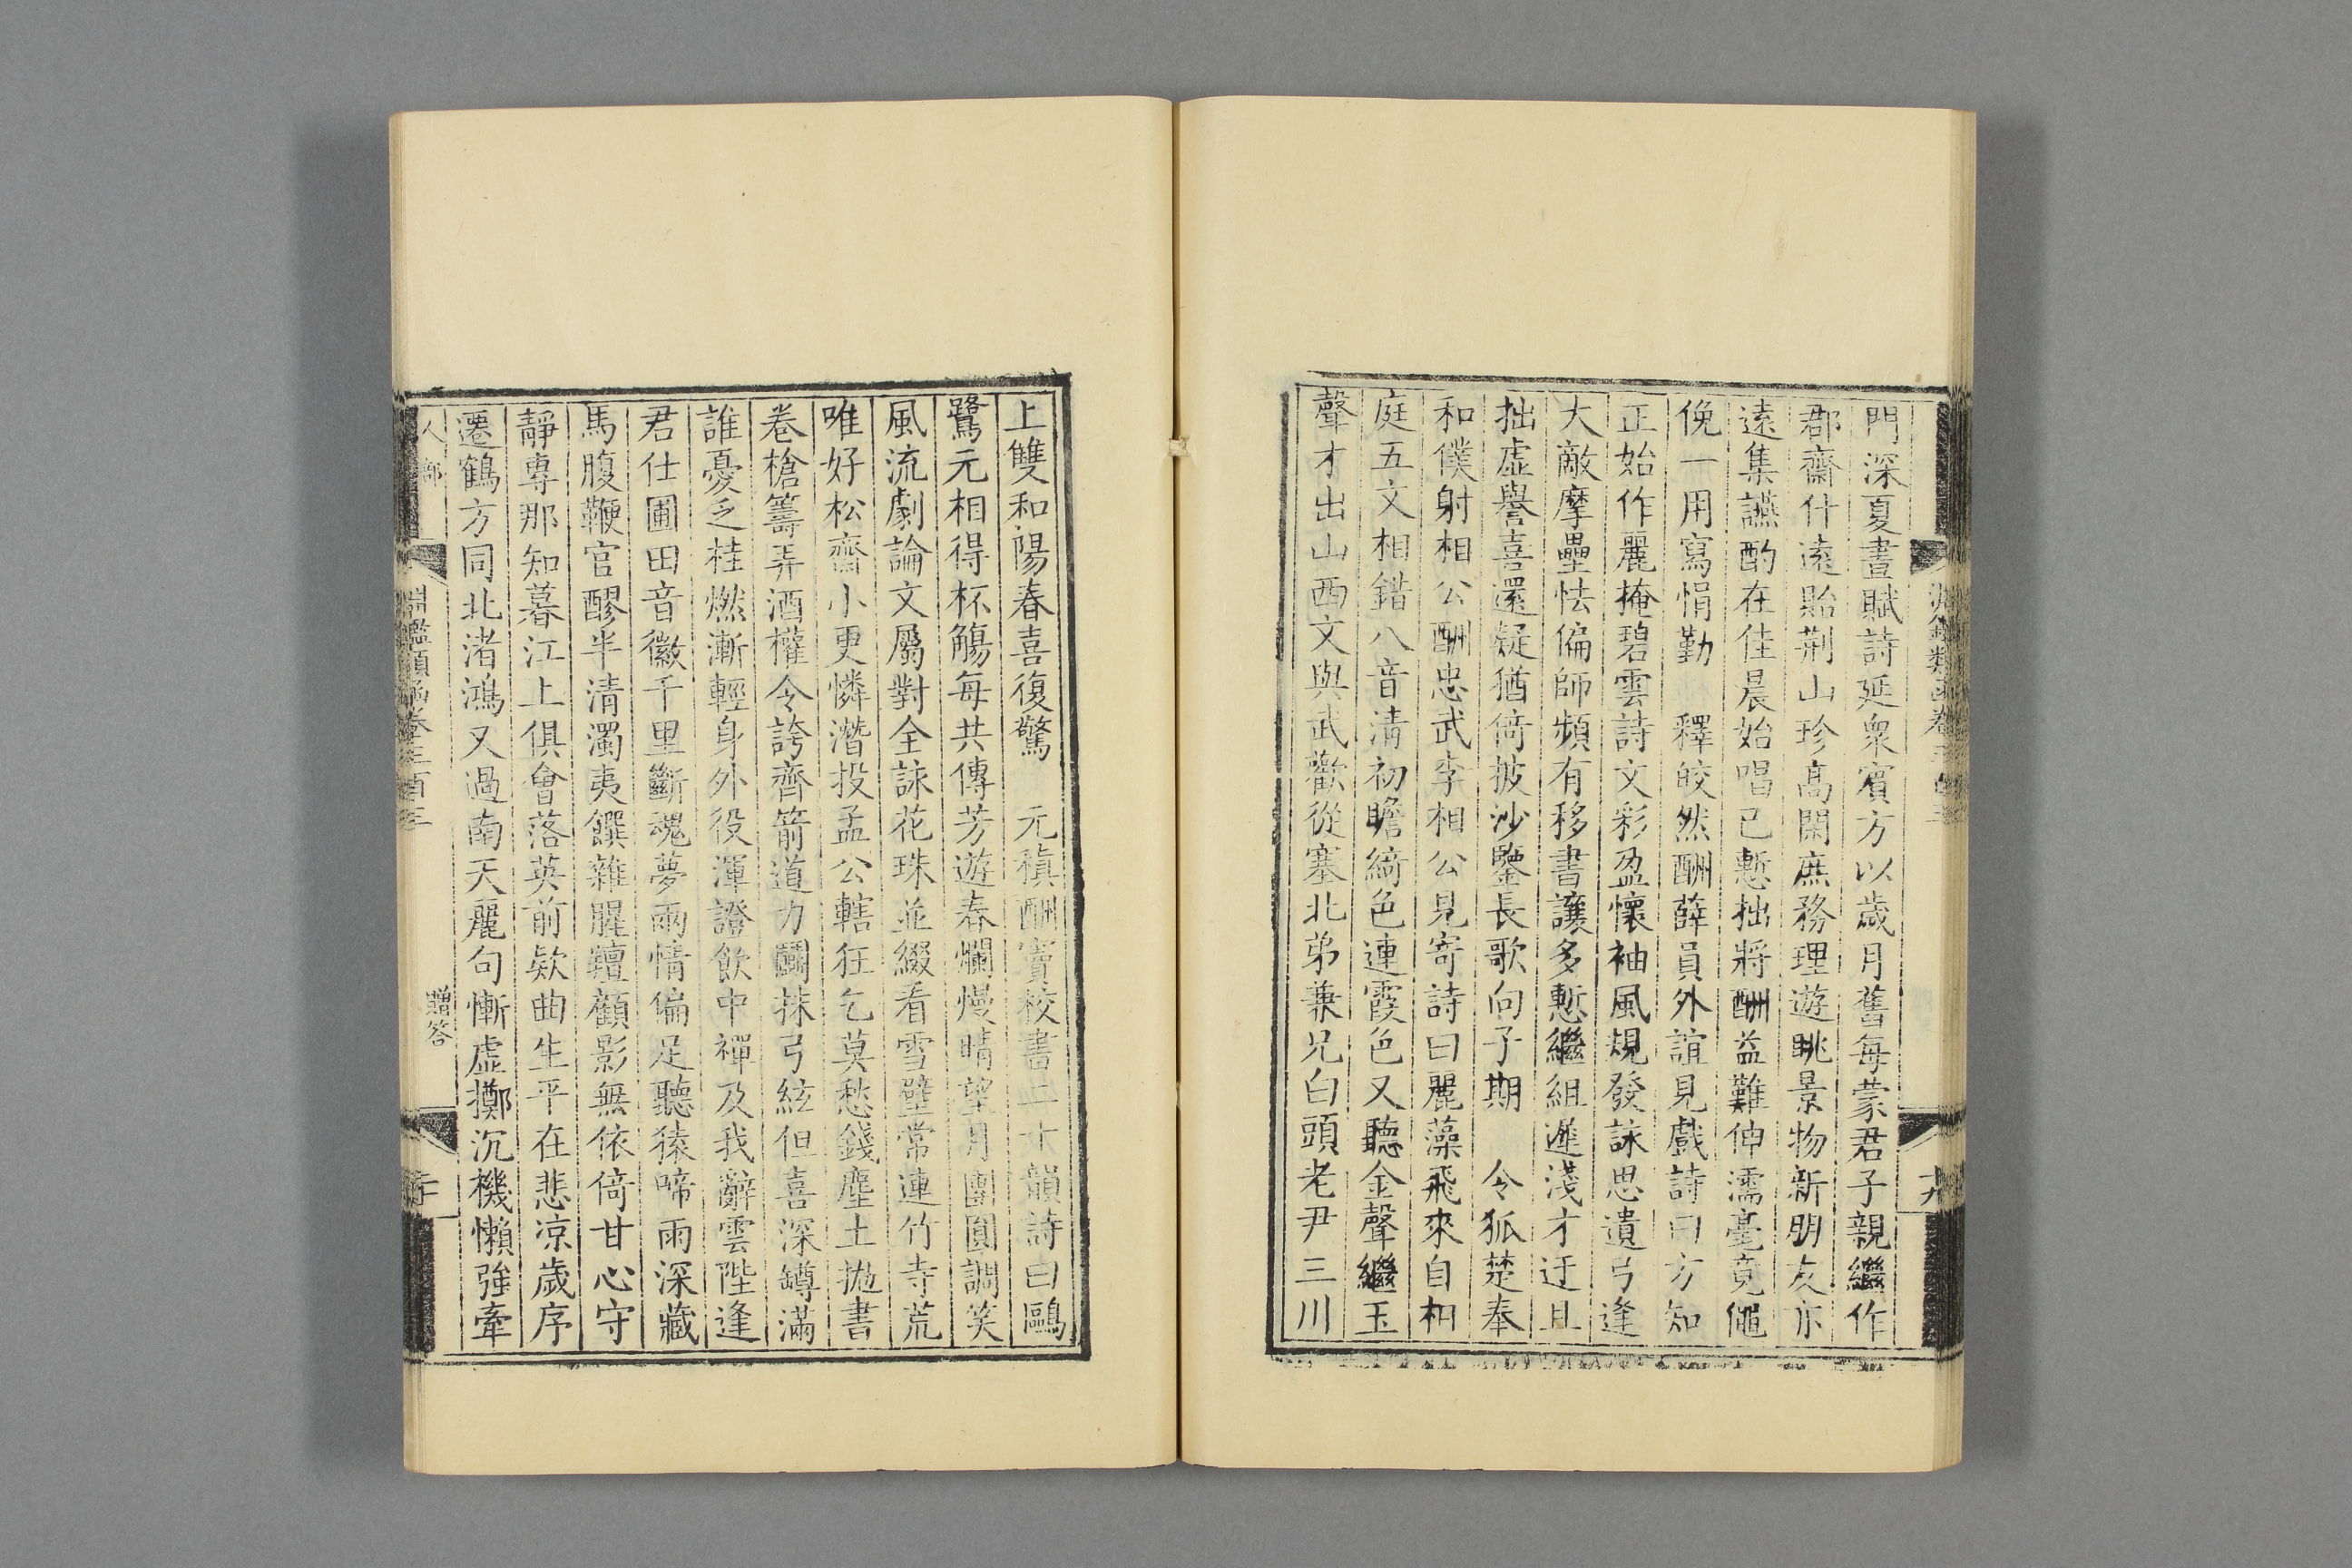 門深夏晝賦詩延衆賓方以歲月舊每蒙君子親繼作
郡齋什遠貽荆山珍高閑庶務理遊眺景物新朋友亦
遠集讌酌在佳晨始唱已慙拙將酬益難伸濡毫竟僶
俛一用寫悁勤　釋皎然酬薛員外誼見戲詩曰方知
正始作麗掩碧雲詩文彩盈懷袖風規發詠思遺弓逢
大敵摩壘怯偏師頻有移書讓多慙繼組遲淺才迂且
拙虛譽喜還疑猶倚披沙鑒長歌向子期　令狐楚奉
和僕射相公酬忠武李相公見寄詩曰麗藻飛來自相
庭五文相錯八音清初瞻綺色連霞色又聽金聲繼玉
聲才出山西文與武歡從塞北弟兼兄白頭老尹三川
上雙和陽春喜復驚　元稹酬竇校書二十韻詩曰鷗
鷺元相得杯觴每共傳芳遊春爛熳晴望月團圓調笑
風流劇論文屬對全詠花珠並綴看雪璧常連竹寺荒
唯好松齋小更憐潛投孟公轄狂乞莫愁錢塵土抛書
卷槍籌弄酒權令誇齊箭道力鬬抹弓絃但喜深罇滿
誰憂乏桂燃漸輕身外役渾證飲中禪及我辭雲陛逢
君仕圃田音徽千里斷魂夢兩情偏足聽猿啼雨深藏
馬腹鞭官醪半清濁夷饌雜腥羶顧影無依倚甘心守
靜專那知暮江上俱會落英前欵曲生平在悲凉歲序
遷鶴方同北渚鴻又過南天麗句慚虛擲沉機懶強牽
人部
淵鑑類函卷三百三
贈答